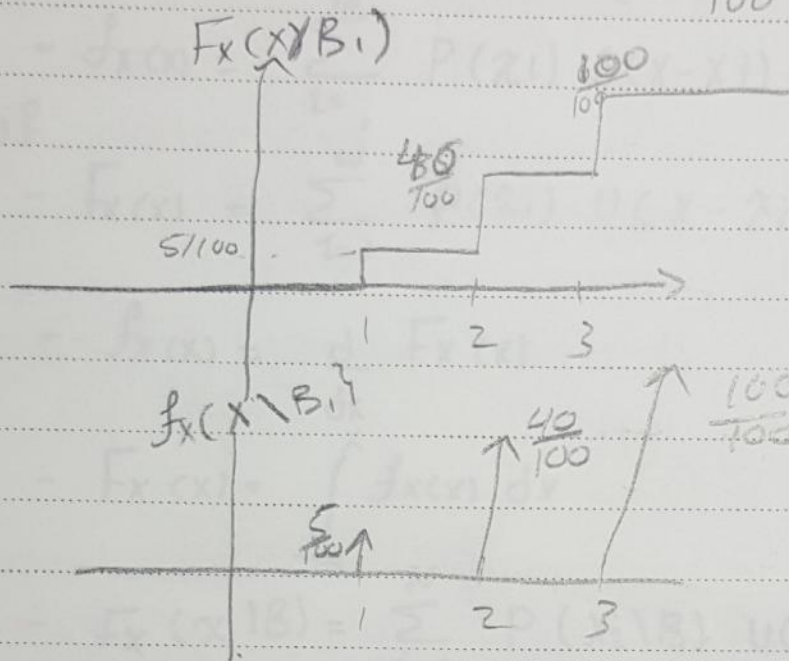 100
Fx(x\B1)
100/100
/100
5/100
1 2 3
fx(x\B1}
100/100
40/100
5/100
1 2 3